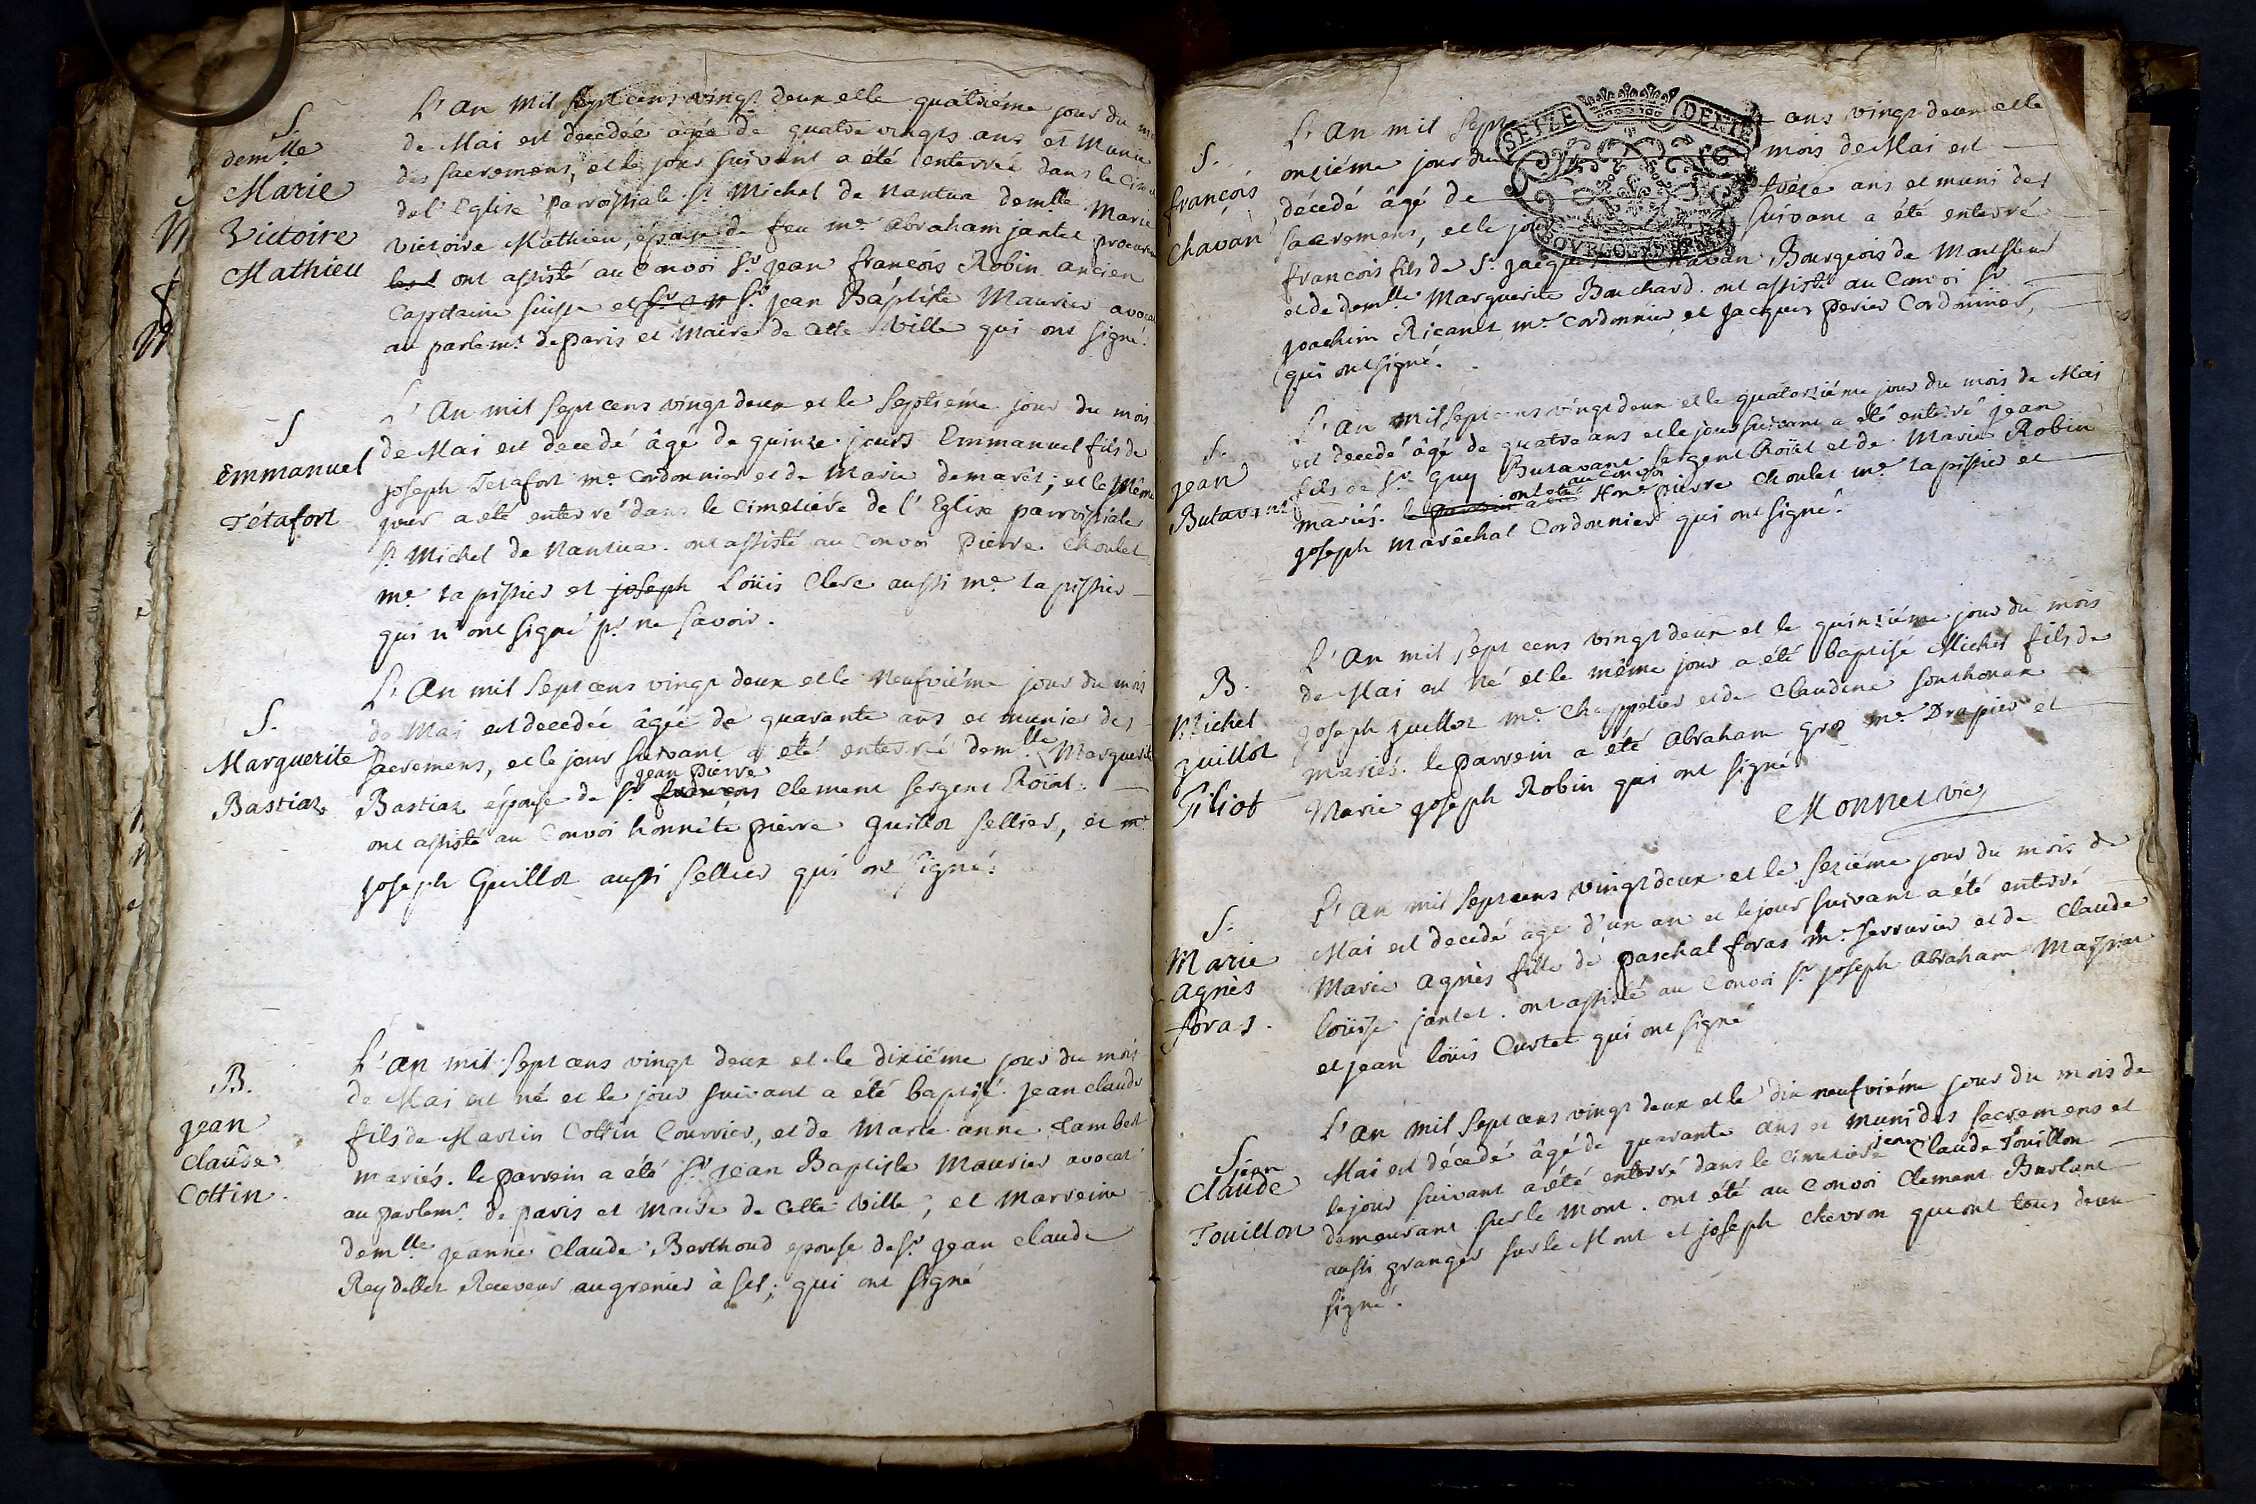 S
demlle
Marie
Victoire
Mathieu
L'An mil sept cens vingt deux et le quatriéme jour du
de Mai est decedée agée de quatre vingts ans et munie
des sacremens, et le jour suivant a été enterrée dans le
de l'Eglise parroissiale St Michel de Nantua demlle Marie
Victoire Mathieu, épouse de feu me Abraham jantet
ont assisté au convoi Sr jean francois Robin ancien
Capitaine suisse et Sr jean Baptiste Maurier avocat
au parlemt de paris et Maire de cette ville qui ont signé.
S
Emmanuel
Tétafort
L'An mil sept cens vingt deux et le septiéme jour du mois
de Mai est decedé âgé de quinze jours Emmanuel fils de
joseph Tétafort me Cordonnier et de Marie demarêt; et le même
jour a été enterré dans le Cimetiére de l'Eglise parroissiale
St Michel de Nantua. ont assisté au Convoi pierre Choulet
me tapissier et joseph Loüis Clerc aussi me tapissier
qui n'ont signé pr ne savoir.
S.
Marguerite
Bastian
L'An mil sept cens vingt deux et le neufviéme jour du mois
de Mai est decedée âgée de quarante ans et munie des
sacremens, et le jour suivant a été enterrée demlle Marguerite
jean pierre
Bastian épouse de Sr francois Clement sergent Roïal.
ont assisté au Convoi honnête pierre Guillot sellier, et me
joseph Guillot aussi sellier qui ont signé.
B.
jean
claude
Cottin.
L'An mil sept cens vingt deux et le dixiéme jour du mois
de Mai est né et le jour suivant a été baptisé jean claude
fils de Martin Cottin Courrier, et de Marie anne Lambert
mariés. le parrein a été Sr jean Baptiste Maurier avocat
au parlemt de paris et Maire de cette ville; et Marreine
demlle jeanne Claude Berthoud épouse de Sr jean claude
Reydellet Receveur au grenier à sel; qui ont signé
S.
francois
Chavan
SEIZE DENIE
L'An mil sept ans vingt deux et le
onziéme jour du mois de Mai est
décedé âgé de treize ans et muni des
sacremens, et le jour suivant a été enterré
francois fils de Sr jacques Chavan Bourgeois de
et de demlle Marguerite Bouchard. ont assisté au Convoi Sr
joachim Ricanet me Cordonnier et jacques perier Cordonnier,
qui ont signé.
S.
jean
Butavant
L'An mil sept cens vingt deux et le quatorziéme jour du mois de Mai
est decedé âgé de quatre ans et le jour suivant a été enterré jean
fils de Sr Guy Butavant sergent Roïal et de Marie Robin
ont été au convoi
mariés. le parrein a été Hone pierre Choulet me tapissier et
joseph Marêchal Cordonnier qui ont signé.
B.
Michel
guillot
Filiot
L'An mil sept cens vingt deux et le quinziéme jour du mois
de Mai est né et le même jour a été baptisé Michel fils de
joseph guillot me Chappelier et de Claudine Sonthonax
mariés. le parrein a été Abraham Gros me Drapier et
Marie joseph Robin qui ont signé
Monnet vic
S.
Marie
Agnès
foras.
L'An mil sept cens vingt deux et le seziéme jour du mois de
Mai est decedé age d'un an et le jour suivant a été enterré
Marie Agnès fille de paschal foras me serrurier et de Claude
loüise jantet. ont assisté au Convoi Sr joseph Abraham
et jean loüis Curtet qui ont signé
S
jean
Claude
Touillon
L'An mil sept cens vingt deux et le dix neufviéme jour du mois de
Mai est décedé âgé de quarante ans et muni des sacremens et
jean
le jour suivant a été enterré dans le Cimetiére Claude Touillon
demeurant sur le Mont. ont été au Convoi Clement Burlant
aussi granger sur le Mont et joseph Chevron qui ont tous deux
signé.